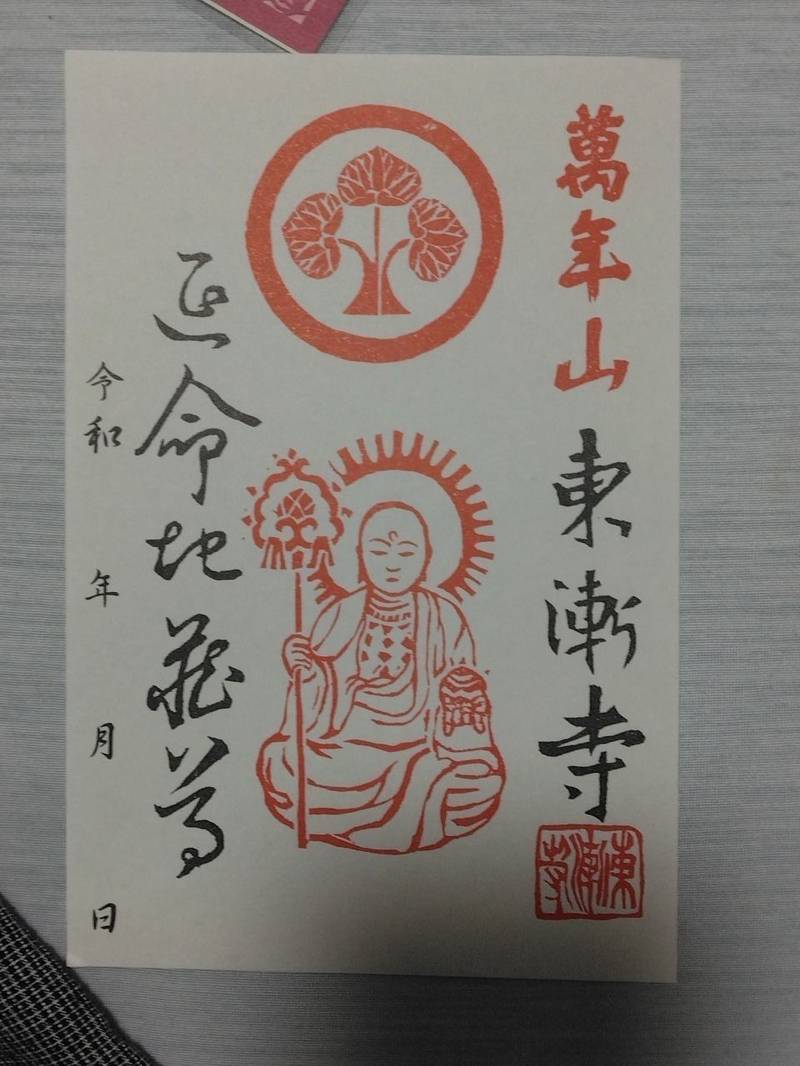 萬年山 東漸寺
東漸寺
延命地蔵尊
令和 年 月 日